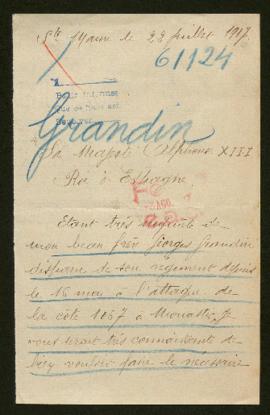 Ste Marie le 22 juillet 1917.
61124
Grandin
Sa Majesté Alphonse XIII
Roi d'Espagne.
Etant très inquiète de
mon beau frère Georges Grandin
disparu de son régiment depuis
le 16 mai à l'attaque de
la côte 1057 à Monastir, je
vous serait très connaissante de
bien vouloir faire le nécessaire